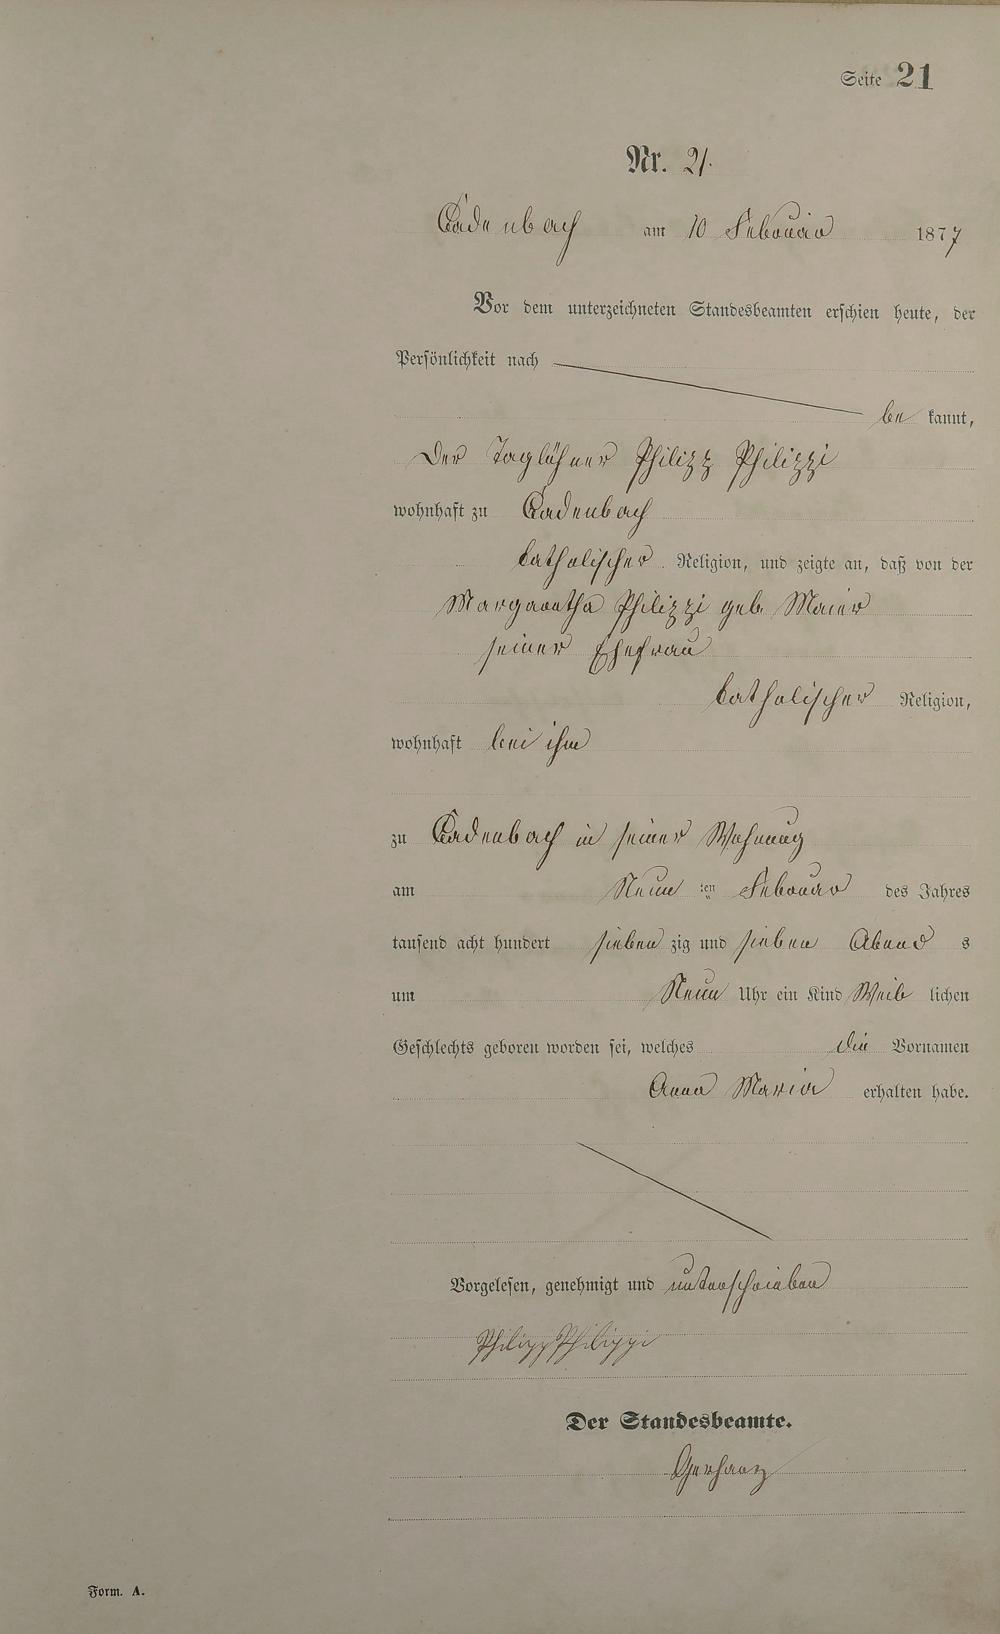 Seite 21
Nr. 21.
Cadenbach am 10 Februar 1877
Vor dem unterzeichneten Standesbeamten erschien heute, der
Persönlichkeit nach
be kannt,
der Taglöhner Philipp Philippi
wohnhaft zu Cadenbach
katholischer Religion, und zeigte an, daß von der
Margaretha Philippi geb. Maier
seiner Ehefrau
katholischer Religion,
wohnhaft bei ihm
zu Cadenbach in seiner Wohnung
am Neun ten Februar des Jahres
tausend acht hundert sieben zig und sieben Abend s
um Neun Uhr ein Kind Weib lichen
Geschlechts geboren worden sei, welches die Vornamen
Anna Maria erhalten habe.
Vorgelesen, genehmigt und unterschrieben
Philipp Philippi
Der Standesbeamte.
Gerharz
Form. A.